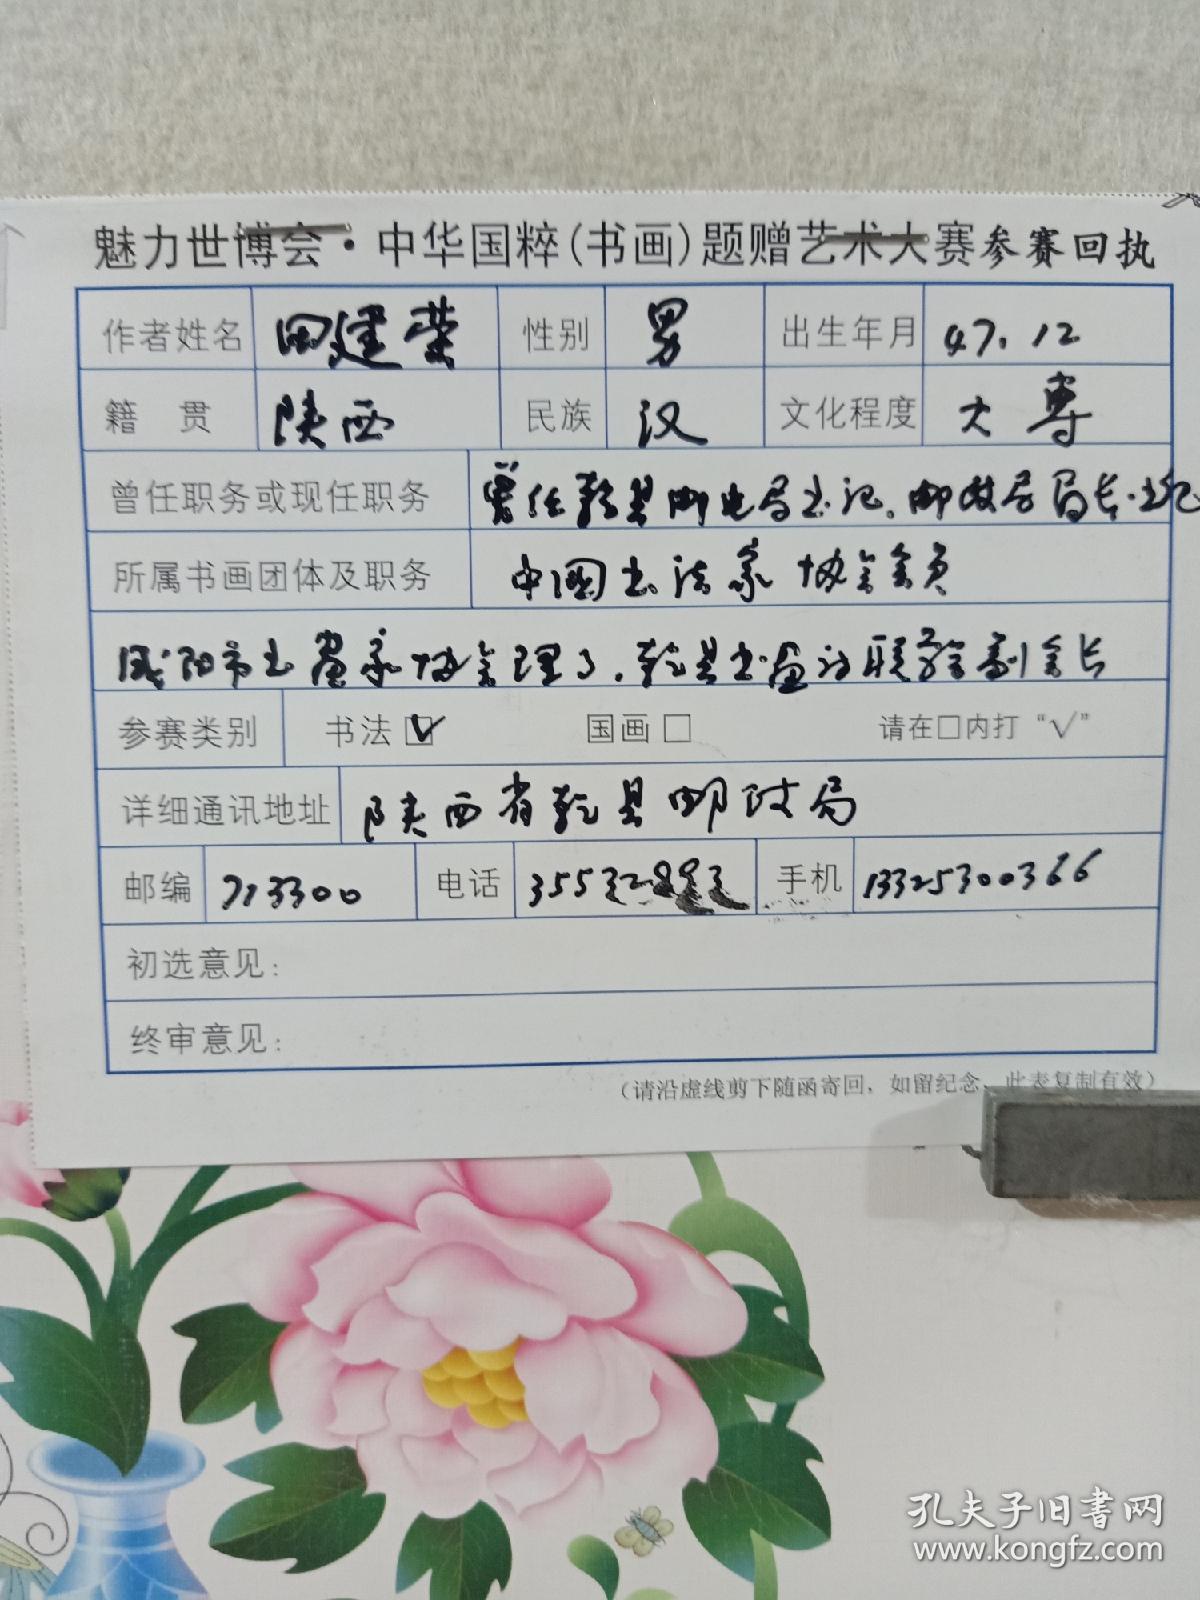 魅力世博会·中华国粹(书画)题赠艺术大赛参赛回执
作者姓名 田建荣 性别 男 出生年月 47.12
籍 贯 陕西 民族 汉 文化程度 大专
曾任职务或现任职务 曾任乾县邮电局书记。邮政局局长·书记
所属书画团体及职务 中国书法家协会会员
咸阳市书画家协会理事.乾县书画 联 会副会长
参赛类别 书法☑ 国画□ 请在□内打“√”
详细通讯地址 陕西省乾县邮政局
邮编 713300 电话 355 手机 13325300366
初选意见:
终审意见:
(请沿虚线剪下随函寄回，如留纪念、此表复制有效)
孔夫子旧书网
www.kongfz.com